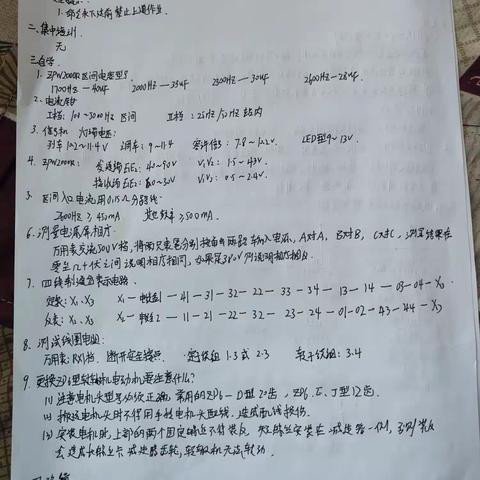 1. 命令未下达前禁止上道作业.
二. 集中培训.
无.
三. 自学.
1. ZPW2000R 区间电容型号.
1700HZ — 40uF 2000HZ — 33uF 2300HZ — 30uF 2600HZ — 28uF.
2. 电流钳
I档: 100~3000HZ 区间 II档: 25HZ/50HZ 站内
3. 信号机 灯端电压:
列车 10.2~11.4V 调车: 9~11.4 容许信号: 7.8~10.2V LED型 9~13V.
4. ZPW2000R: 发送端 E1E2: 40~90V V1V2: 1.5~4.3V
接收端 E1E2: 30V V1V2: 0.5~2.4V.
5. 区间入口电流用0.15Ω分路线
2600HZ ≥ 450mA 其他频率 ≥ 500mA.
6. 测量电源屏相序.
万用表交流500V档, 将两只表笔分别接在两路输入电源, A对A, B对B, C对C, 测量结果在
零至几十伏之间说明相序相同, 如果是380V则说明相序相反.
7. 四线制道岔表示电路.
定表: X1、X3 X1 — 41 — 31 — 32 — 22 — 33 — 34 — 13 — 14 — 03-04 — X3
反表: X2、X3 X2 — 11 — 21 — 22 — 32 — 23 — 24 — 01-02 — 43 — 44 — X3
8. 测试线圈电阻.
万用表: RX1档. 断开安全接点. 定子绕组 1.3 或 2.3 转子绕组: 3.4
9. 更换ZD6型转辙机电动机要注意什么?
(1) 注意电机类型号必须正确, 常用的ZD6-D型20齿, ZD6.E、J型12齿.
(2) 拆卸电机头时不得用手拉电机头配线, 造成配线损伤.
(3) 安装电机时, 上部的两个固定螺丝不得装反, 短螺丝安装在减速器一侧, 否则装反
会造成长螺丝卡减速器齿轮, 转辙机无法转动.